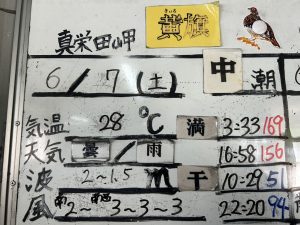 真栄田岬 きいろ 黄旗
6/7(土) 中潮
気温 28℃ 満 3:33 169
天気 曇/雨 16:58 156
波 2~1.5m 干 10:29 51
風 南2~南西3~3~3 22:20 94